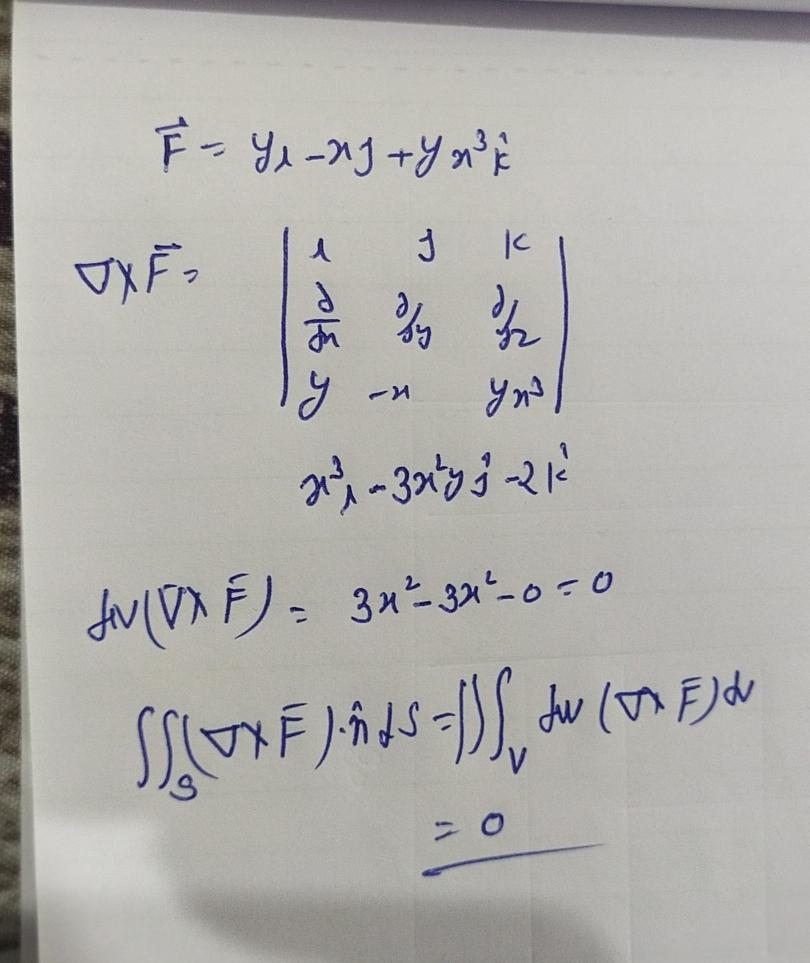 F⃗ = yi - xj + yx³k̂
∇×F⃗ =
| i j k |
| ∂/∂x ∂/∂y ∂/∂z |
| y -x yx³ |
x³i - 3x²yĵ - 2k̂
div(∇×F̄) = 3x² - 3x² - 0 = 0
∬ₛ(∇×F̄).n̂ds = ∭ᵥ div(∇×F̄)dv
= 0